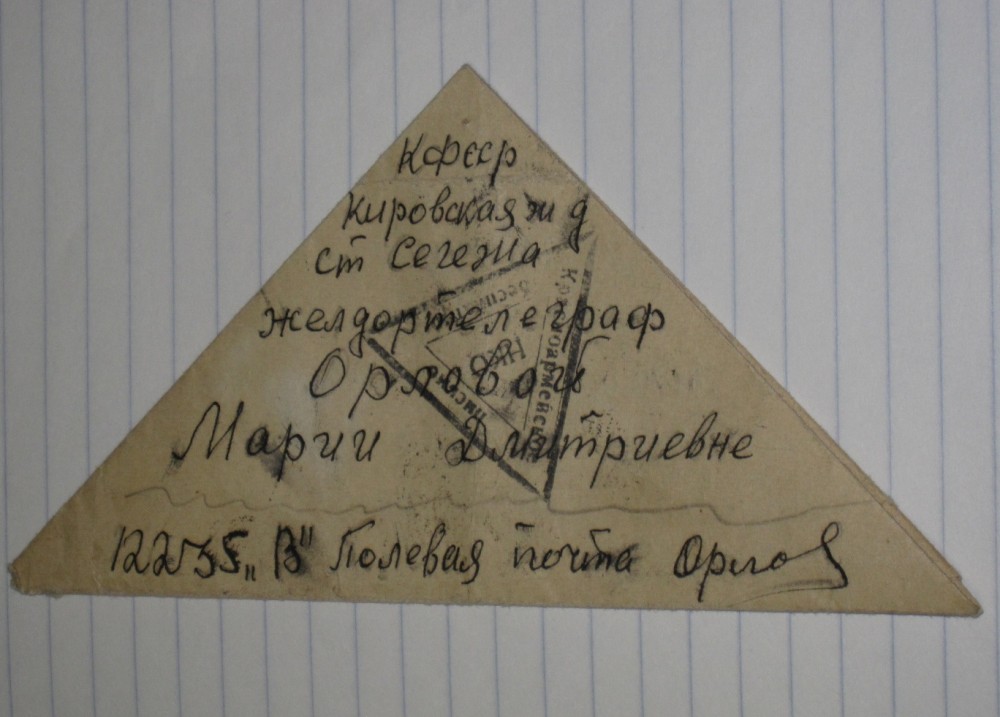 Кфсср
Кировская ж д
ст Сегежа
желдортелеграф
Орловой
Марии Дмитриевне
Полевая почта Орлов
Красноармейское
письмо
бесплатно